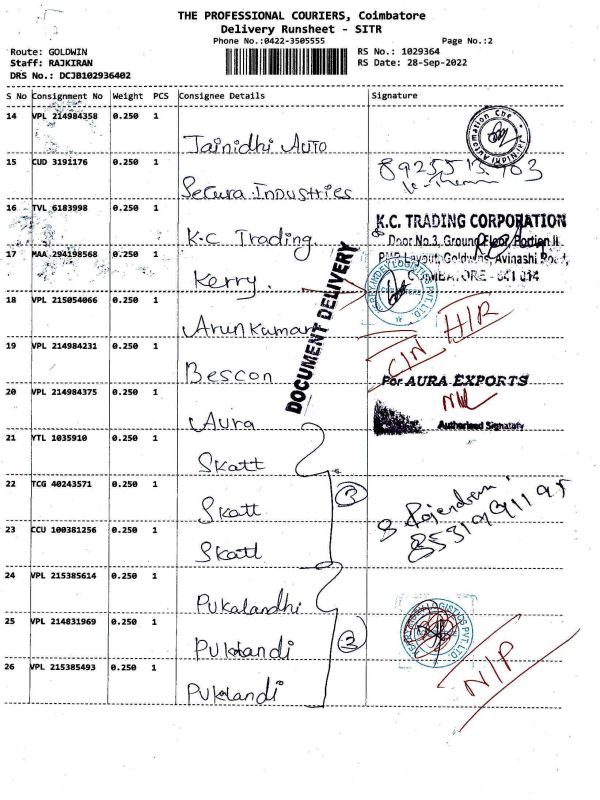 THE PROFESSIONAL COURIERS, Coimbatore
Delivery Runsheet - SITR
Phone No.:0422-3505555 Page No.:2
Route: GOLDWIN RS No.: 1029364
Staff: RAJKIRAN RS Date: 28-Sep-2022
DRS No.: DCJB102936402
S No Consignment No Weight PCS Consignee Details Signature
14 VPL 214984358 0.250 1
Jainidhi Auto
15 CUD 3191176 0.250 1
Secura Industries
16 TVL 6183998 0.250 1
K.C Trading
K.C. TRADING CORPORATION
Door No.3, Ground Floor, Portion II
PMR Layout, Goldwins, Avinashi Road,
COIMBATORE - 641 014
17 MAA 294198568 0.250 1
Kerry
18 VPL 215054066 0.250 1
Arun Kumar
DOCUMENT DELIVERY
CIN H/R
19 VPL 214984231 0.250 1
Bescon
For AURA EXPORTS
20 VPL 214984375 0.250 1
Aura
Authorised Signatory
21 YTL 1035910 0.250 1
Skatt
22 TCG 40243571 0.250 1
Skatt
3
B Rajendran
23 CCU 100381256 0.250 1
Skatt
24 VPL 215385614 0.250 1
Pukalandhi
25 VPL 214831969 0.250 1
Puklandi
3
26 VPL 215385493 0.250 1
Puklandi
N/P